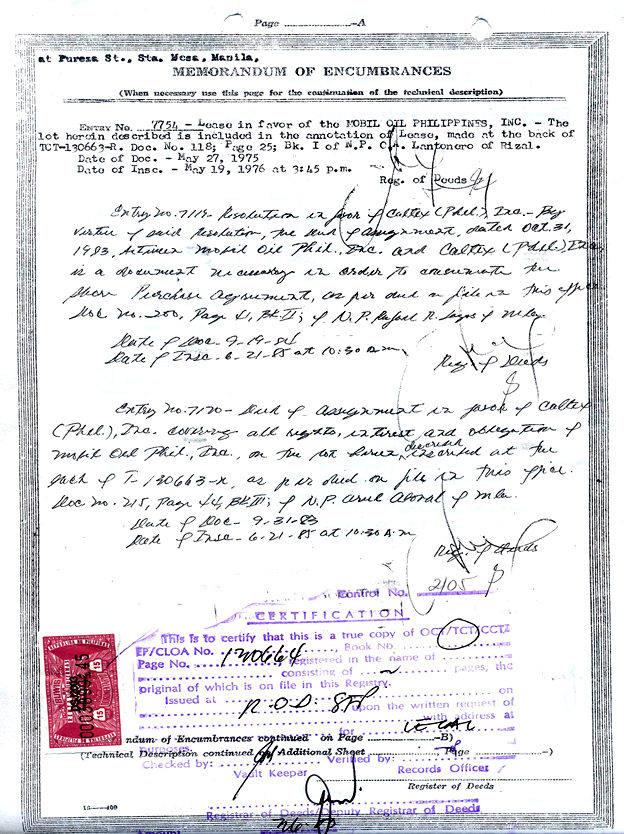 Page ........................—A
at Pureza St., Sta. Mesa, Manila,
MEMORANDUM OF ENCUMBRANCES
(When necessary use this page for the continuation of the technical description)
ENTRY No. 7754 - Lease in favor of the MOBIL OIL PHILIPPINES, INC. - The
lot herein described is included in the annotation of Lease, made at the back of
TCT-130663-R. Doc. No. 118; Page 25; Bk. I of N.P. C.A. Lantonero of Rizal.
Date of Doc. - May 27, 1975
Date of Insc. - May 19, 1976 at 3:45 p.m.
Reg. of Deeds
Entry no. 7119- Resolution in favor of Caltex (Phil.), Inc. - By
virtue of said Resolution, the deed of assignment, dated Oct. 31,
1983, between Mobil Oil Phil., Inc. and Caltex (Phil.), Inc.
is a document necessary in order to consummate the
Share Purchase Agreement, as per deed on file in this office
Doc no. 200, Page 41, Bk II; of N.P. Rafael R. of Mla.
Date of Doc- 9-19-84
Date of Insc- 6-21-85 at 10:30 a.m.
Reg. of Deeds
Entry no. 7120- Deed of assignment in favor of Caltex
(Phil.), Inc. covering all rights, interest and obligation of
Mobil Oil Phil., Inc., on the lot herein described inscribed at the
back of T-130663-R, as per deed on file in this office.
Doc no. 215, Page 44, Bk III; of N.P. of Mla.
Date of Doc- 9-31-83
Date of Insc- 6-21-85 at 10:30 a.m
Reg. of Deeds
Control No. 2105
CERTIFICATION
This is to certify that this is a true copy of OCT/TCT/CCT/
EP/CLOA No. ............, Book No. ............
Page No. 120664 registered in the name of ............
consisting of ............ pages, the
original of which is on file in this Registry.
Issued at R.O.D. ............ on
upon the written request of
with address at
for LEGAL
ndum of Encumbrances continued on Page ............—B)
purposes.
(Technical Description continued on Additional Sheet ............ Page ............—)
Checked by: Verified by:
Vault Keeper Records Officer
Register of Deeds
Registrar of Deeds/Deputy Registrar of Deeds